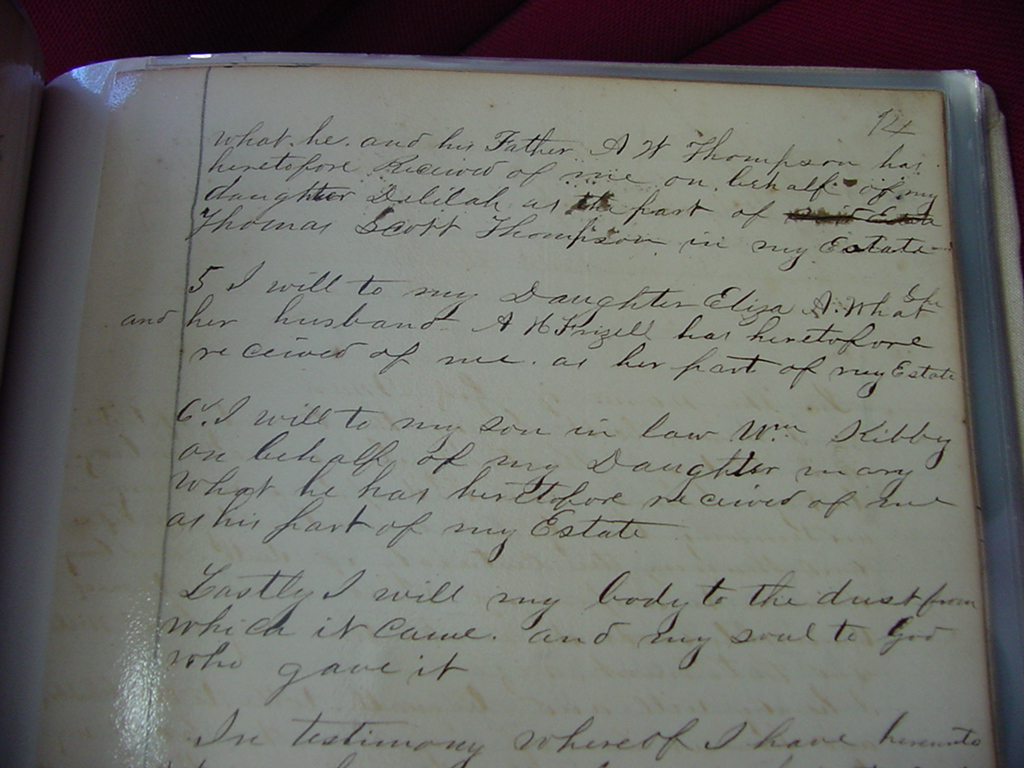 74
what he, and his Father. A H Thompson has
heretofore received of me on behalf of my
daughter Delilah as the part of
Thomas Scott Thompson, in my Estate
5 I will to my daughter Eliza A. What she
and her husband A H has heretofore
received of me. as her part of my Estate
6. I will to my son in law Wm Kibby
on behalf of my daughter mary
What he has heretofore received of me
as his part of my Estate
Lastly I will my body to the dust from
which it came. and my soul to God
who gave it
In testimony whereof I have hereunto